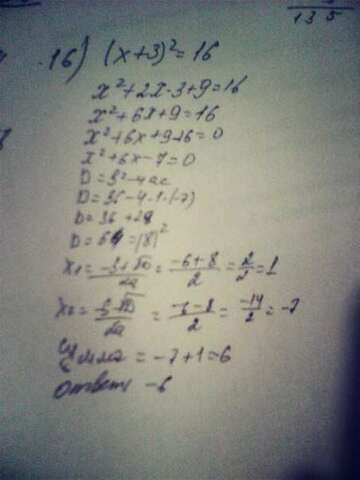 135
16) (x+3)²=16
x²+2x·3+9=16
x²+6x+9=16
x²+6x+9-16=0
x²+6x-7=0
D=b²-4ac
D=36-4·1·(-7)
D=36+28
D=64=(8)²
x₁=-b+√D/2a=-6+8/2=2/2=1
x₂=-b-√D/2a=-6-8/2=-14/2=-7
Сумма=-7+1=6
Ответ: -6